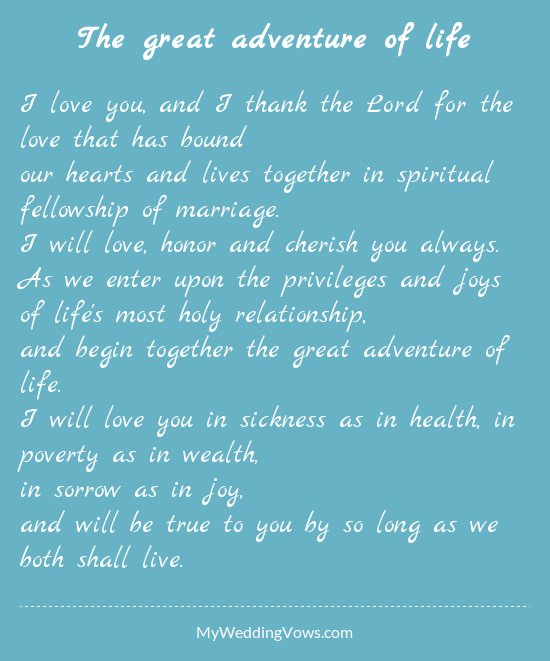 The great adventure of life
I love you, and I thank the Lord for the
love that has bound
our hearts and lives together in spiritual
fellowship of marriage.
I will love, honor and cherish you always.
As we enter upon the privileges and joys
of life's most holy relationship,
and begin together the great adventure of
life.
I will love you in sickness as in health, in
poverty as in wealth,
in sorrow as in joy,
and will be true to you by so long as we
both shall live.
MyWeddingVows.com